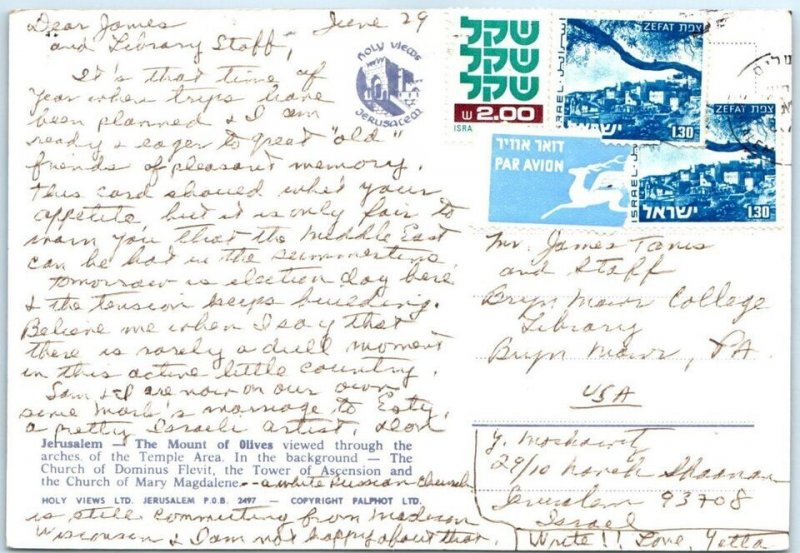 Dear James June 29
and Library Staff,
It's that time of
year when trips have
been planned & I am
ready & eager to great "old"
friends of pleasant memory.
This card should whet your
appetite but it is only fair to
warn you that the Middle East
can be hot in the summertime
Tomorrow is election day here
& the tension keeps building.
Believe me when I say that
there is rarely a dull moment
in this active little country.
Sam & I are now on our own
since Mark's marriage to Esty,
a pretty Israeli artist.
Jerusalem — The Mount of Olives viewed through the
arches of the Temple Area. In the background — The
Church of Dominus Flevit, the Tower of Ascension and
the Church of Mary Magdalene. -- a white Russian Church
HOLY VIEWS LTD. JERUSALEM P.O.B. 2497 – COPYRIGHT PALPHOT LTD.
is still commuting from Madison
Wisconsin & I am not happy about that.
HOLY VIEWS
JERUSALEM
שקל
שקל
שקל
ש 2.00
ISRA
ZEFAT צפת
ISRAEL ישראל
ישראל 1.30
ZEFAT צפת
ISRAEL
ישראל 1.30
דואר אוויר
PAR AVION
Mr. James Tanis
and Staff
Bryn Mawr College
Library
Bryn Mawr, PA.
USA
Y. Moskowitz
29/10
Jerusalem 93708
Israel
Write!! Love, Yetta